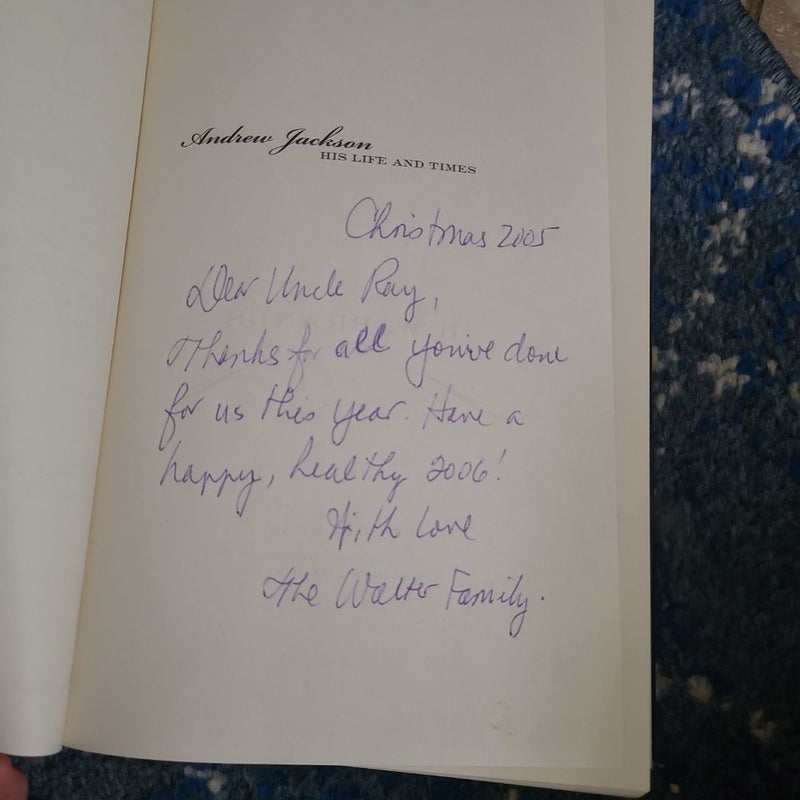 Andrew Jackson
HIS LIFE AND TIMES
Christmas 2005
Dear Uncle Ray,
Thanks for all you've done
for us this year. Have a
happy, healthy 2006!
With love
The Walter Family.